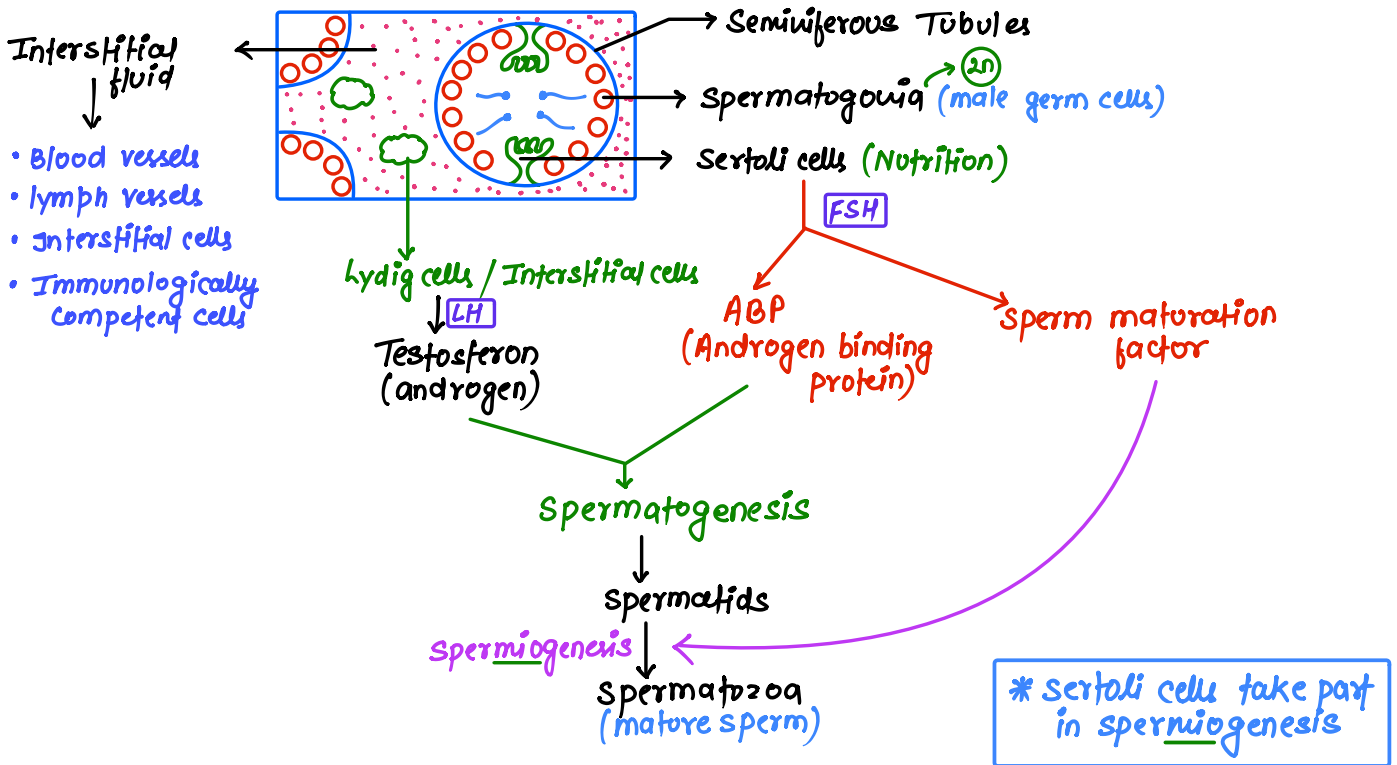 Interstitial
fluid
• Blood vessels
• lymph vessels
• Interstitial cells
• Immunologically
competent cells
Seminiferous Tubules
2n
Spermatogonia (male germ cells)
Sertoli cells (Nutrition)
FSH
Lydig cells / Interstitial cells
LH
Testosteron
(androgen)
ABP
(Androgen binding
protein)
Sperm maturation
factor
Spermatogenesis
Spermatids
Spermiogenesis
Spermatozoa
(mature sperm)
* Sertoli cells take part
in spermiogenesis